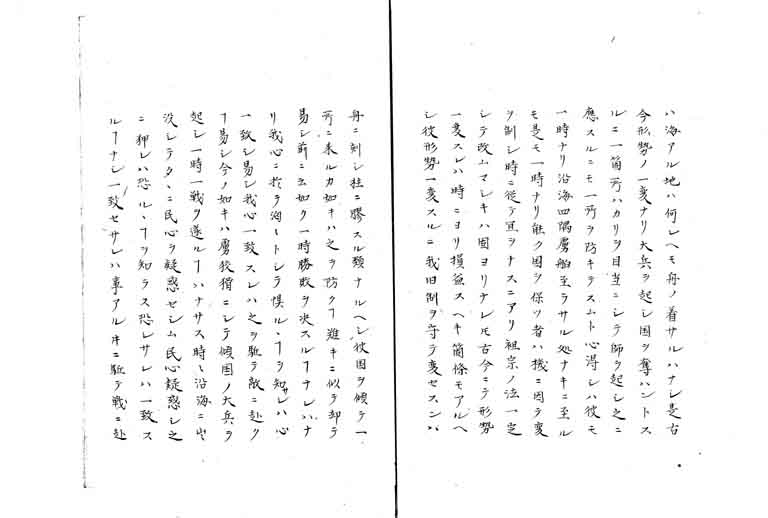 ハ海アル地ハ何レヘモ舟ノ着サルハナシ是古
今形勢ノ一変ナリ大兵ヲ起シ国ヲ奪ハントス
ルニ一箇所ハカリヲ目当ニシテ師ヲ起シ之ニ
應スルニモ一所ヲ防キテスムト心得シハ彼モ
一時ナリ沿海四隅虜舶至ラサル処ナキニ至ル
モ是モ一時ナリ能ク国ヲ保ツ者ハ機ニ因テ変
ヲ制シ時ニ従テ宜ヲナスニアリ祖宗ノ法一定
シテ改ムマシキハ固ヨリナレ𪜈古今ニテ形勢
一変スレハ時ニヨリ損益スヘキ箇條モアルヘ
シ彼形勢一変スルニ我旧制ヲ守テ変セスンハ
舟ニ刻シ柱ニ膠スル類ナルヘシ彼国ヲ傾テ一
所ニ来ルカ如キハ之ヲ防クヿ難キニ似テ却テ
易シ前ニ云如ク一時勝敗ヲ決スルヿナレハナ
リ我心ニ於テ洶〻トシテ惧ルヽヿヲ知サレハ心
一致シ易シ我心一致スレハ之ヲ駈テ敵ニ赴ク
ヿ易シ今ノ如キハ虜狡猾ニシテ傾国ノ大兵ヲ
起シ一時一戦ヲ遂ルヿハナサス時〻沿海ニ出
没シテタヽニ民心ヲ疑惑セシム民心疑惑シ之
ニ狎レハ恐ルヽヿヲ知ラス恐レサレハ一致ス
ルヿナシ一致セサレハ事アル𪜈ニ駈テ戦ニ赴